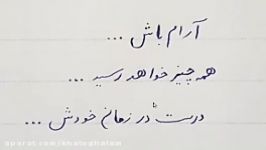 آرام باش ...
همه چیز خواهد رسید ...
درست در زمان خودش ...
aparat.com/khateghalam